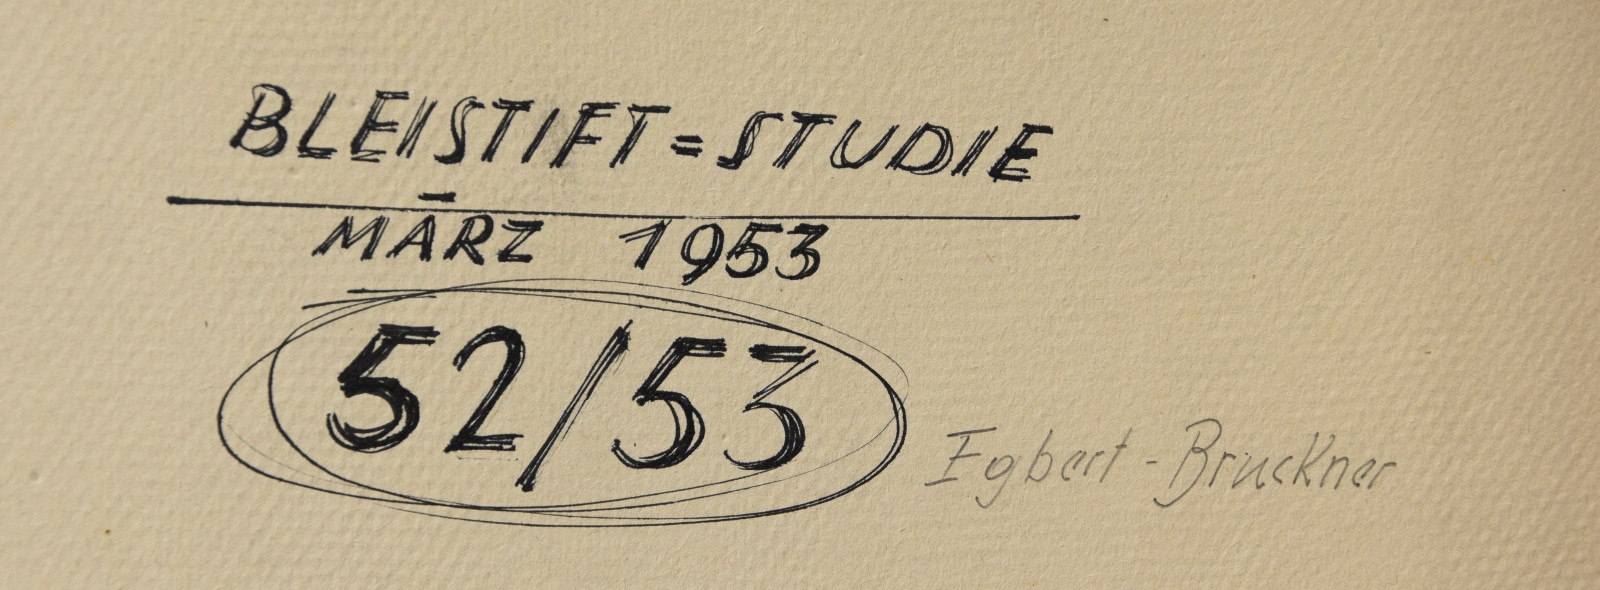 BLEISTIFT=STUDIE
MÄRZ 1953
52/53
Egbert-Bruckner